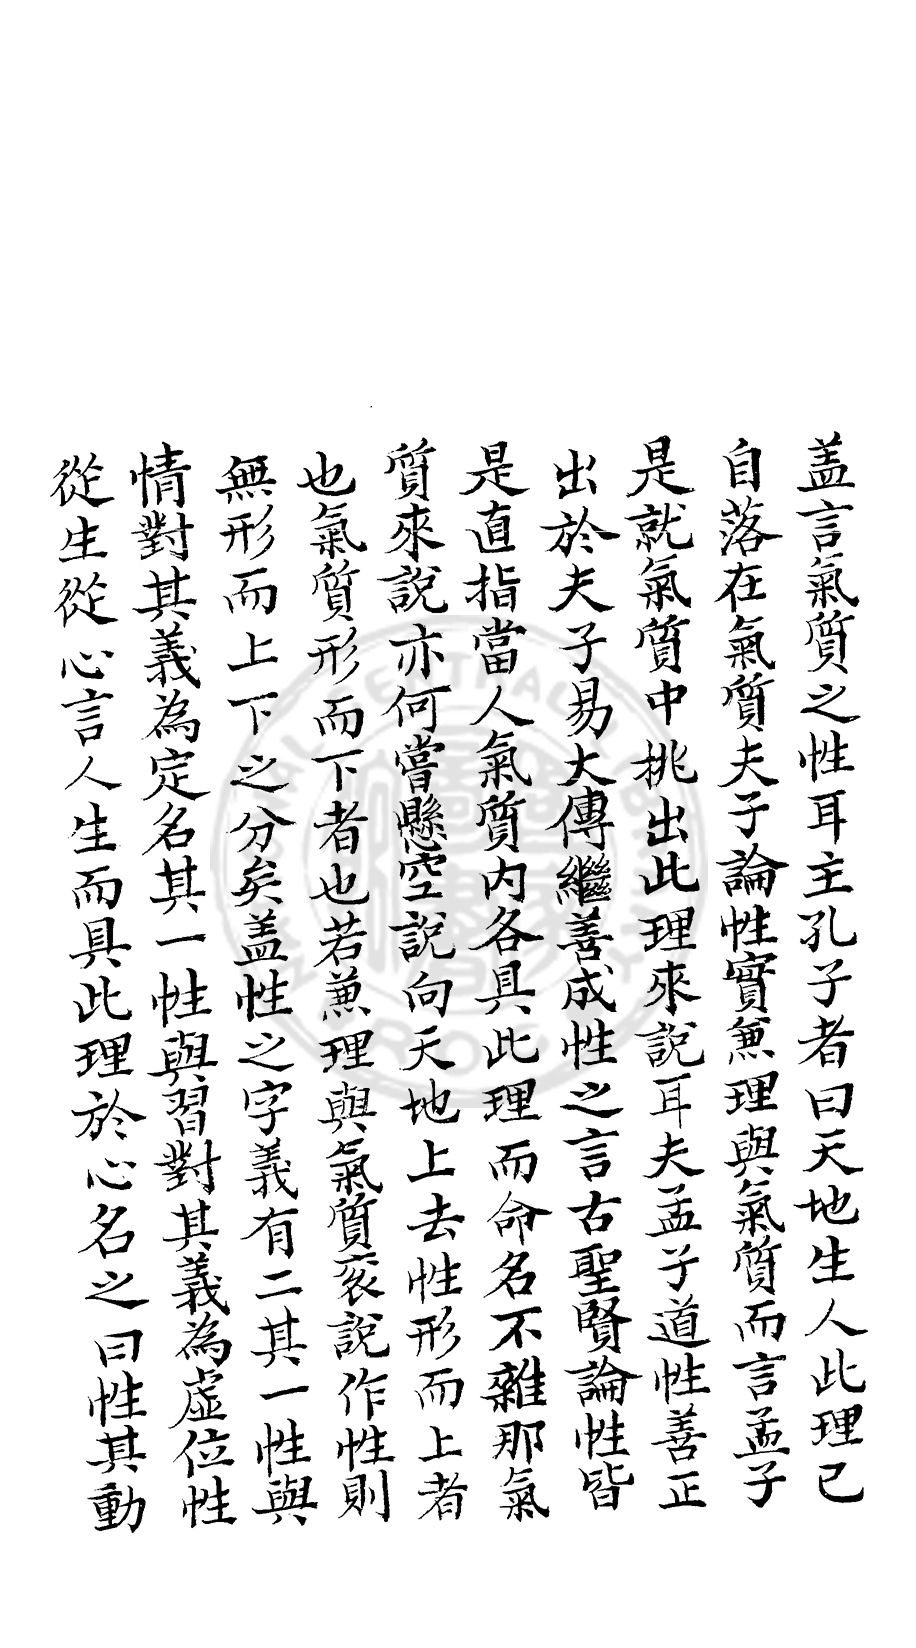 盖言氣質之性耳主孔子者曰天地生人此理已
自落在氣質夫子論性實兼理與氣質而言孟子
是就氣質中挑出此理來說耳夫孟子道性善正
出於夫子易大傳繼善成性之言古聖賢論性皆
是直指當人氣質內各具此理而命名不雜那氣
質來說亦何嘗懸空說向天地上去性形而上者
也氣質形而下者也若兼理與氣質衮說作性則
無形而上下之分矣盖性之字義有二其一性與
情對其義為定名其一性與習對其義為虛位性
從生從心言人生而具此理於心名之曰性其動